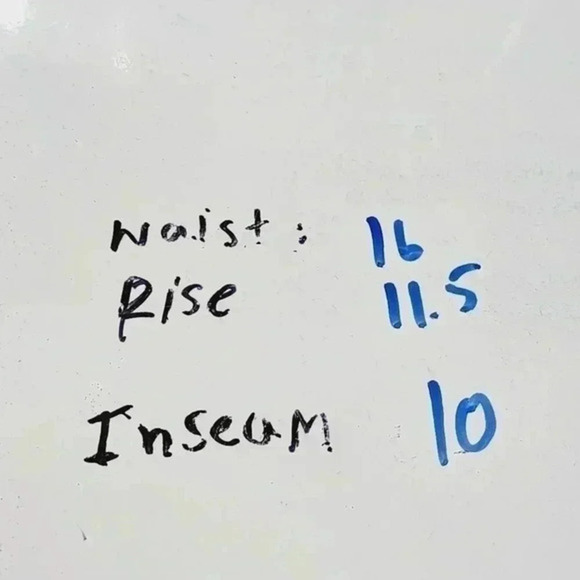 Waist: 16
Rise 11.5
Inseam 10